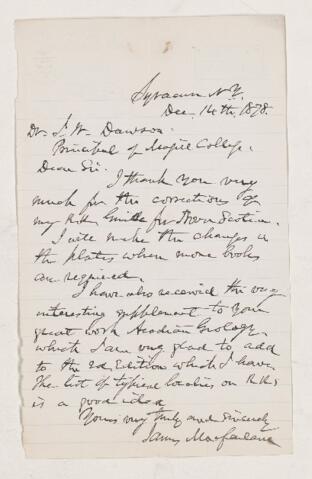 Syracuse N.Y.
Dec. 14th, 1878.
Dr. J. W. Dawson.
Principal of Magill College.
Dear Sir.
I thank you very
much for the corrections to
my R.R. Guide for Nova Scotia.
I will make the changes in
the plates when more books
are required.
I have also received the very
interesting supplement to your
great work Acadian Geology,
which I am very glad to add
to the 2d Edition which I have.
The list of typical localities on R.R.s
is a good idea
Yours very truly and sincerely
James Macfarlane